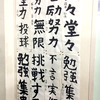 々堂々 勉強集
励努力 不言実
努力無限 挑戦する
力投球 勉強集